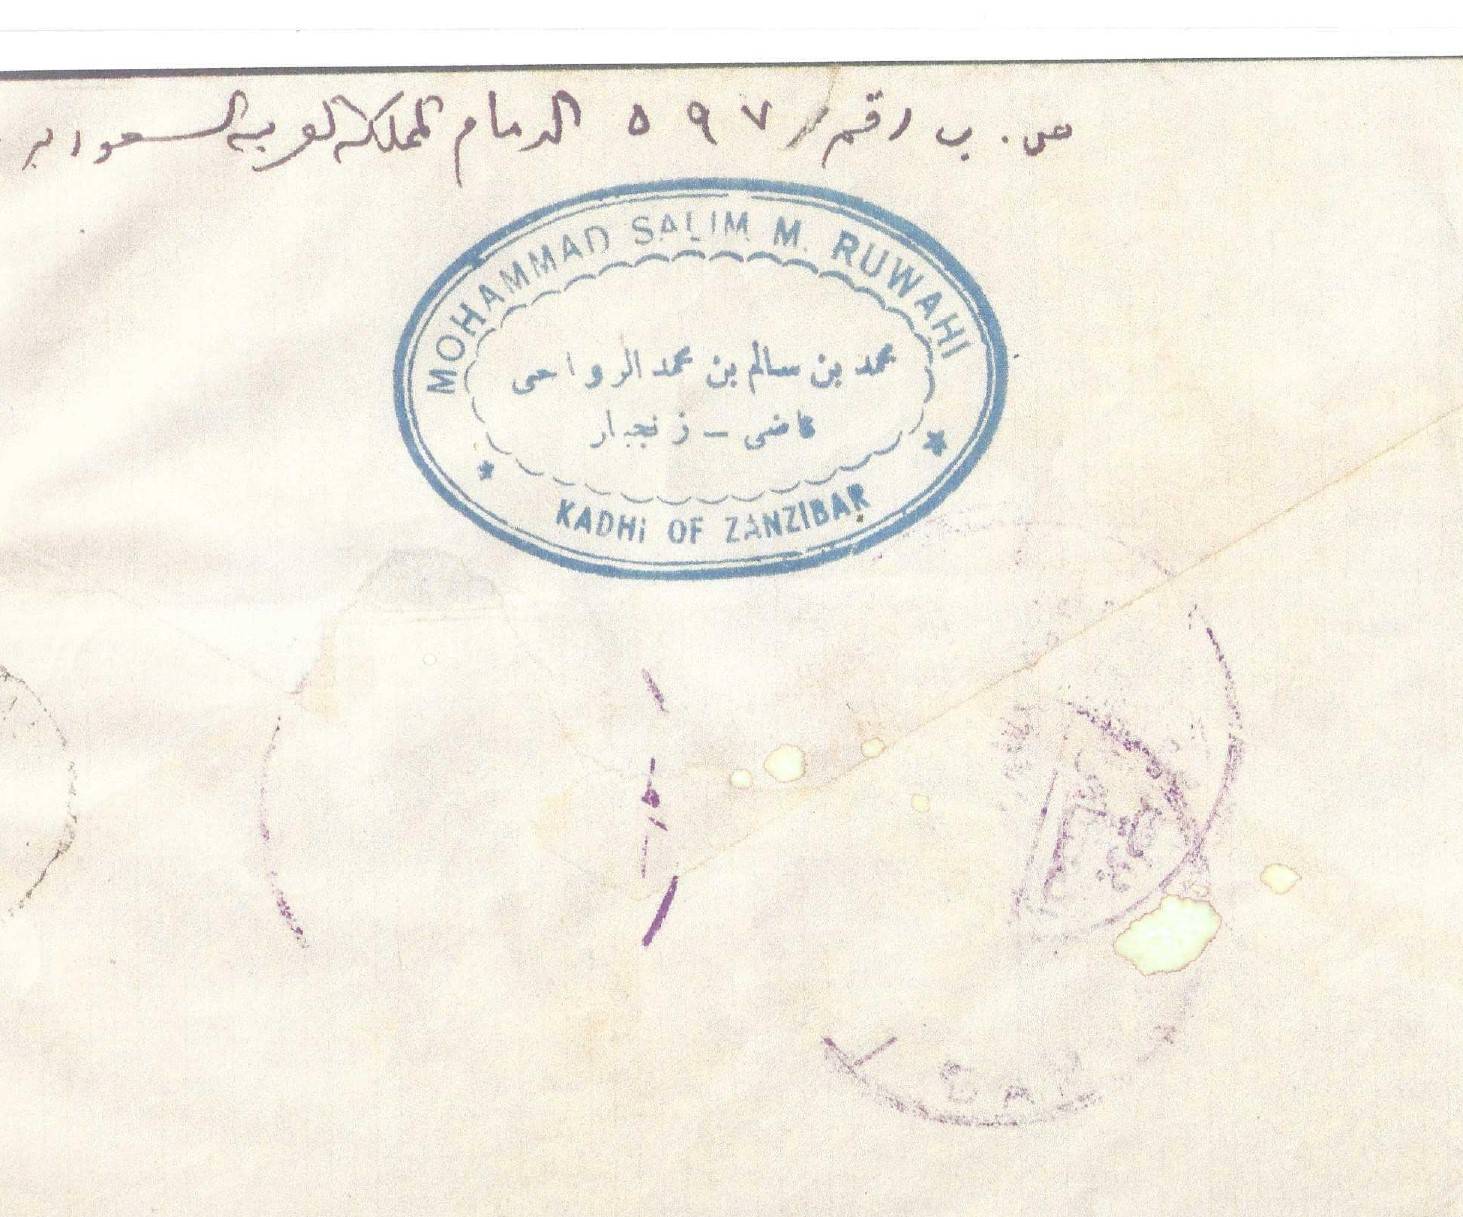 ص. ب رقم / ٥٩٧ الدمام المملكة العربية السعودية
MOHAMMAD SALIM M. RUWAHI
محمد بن سالم بن محمد الرواحى
قاضى – زنجبار
KADHI OF ZANZIBAR